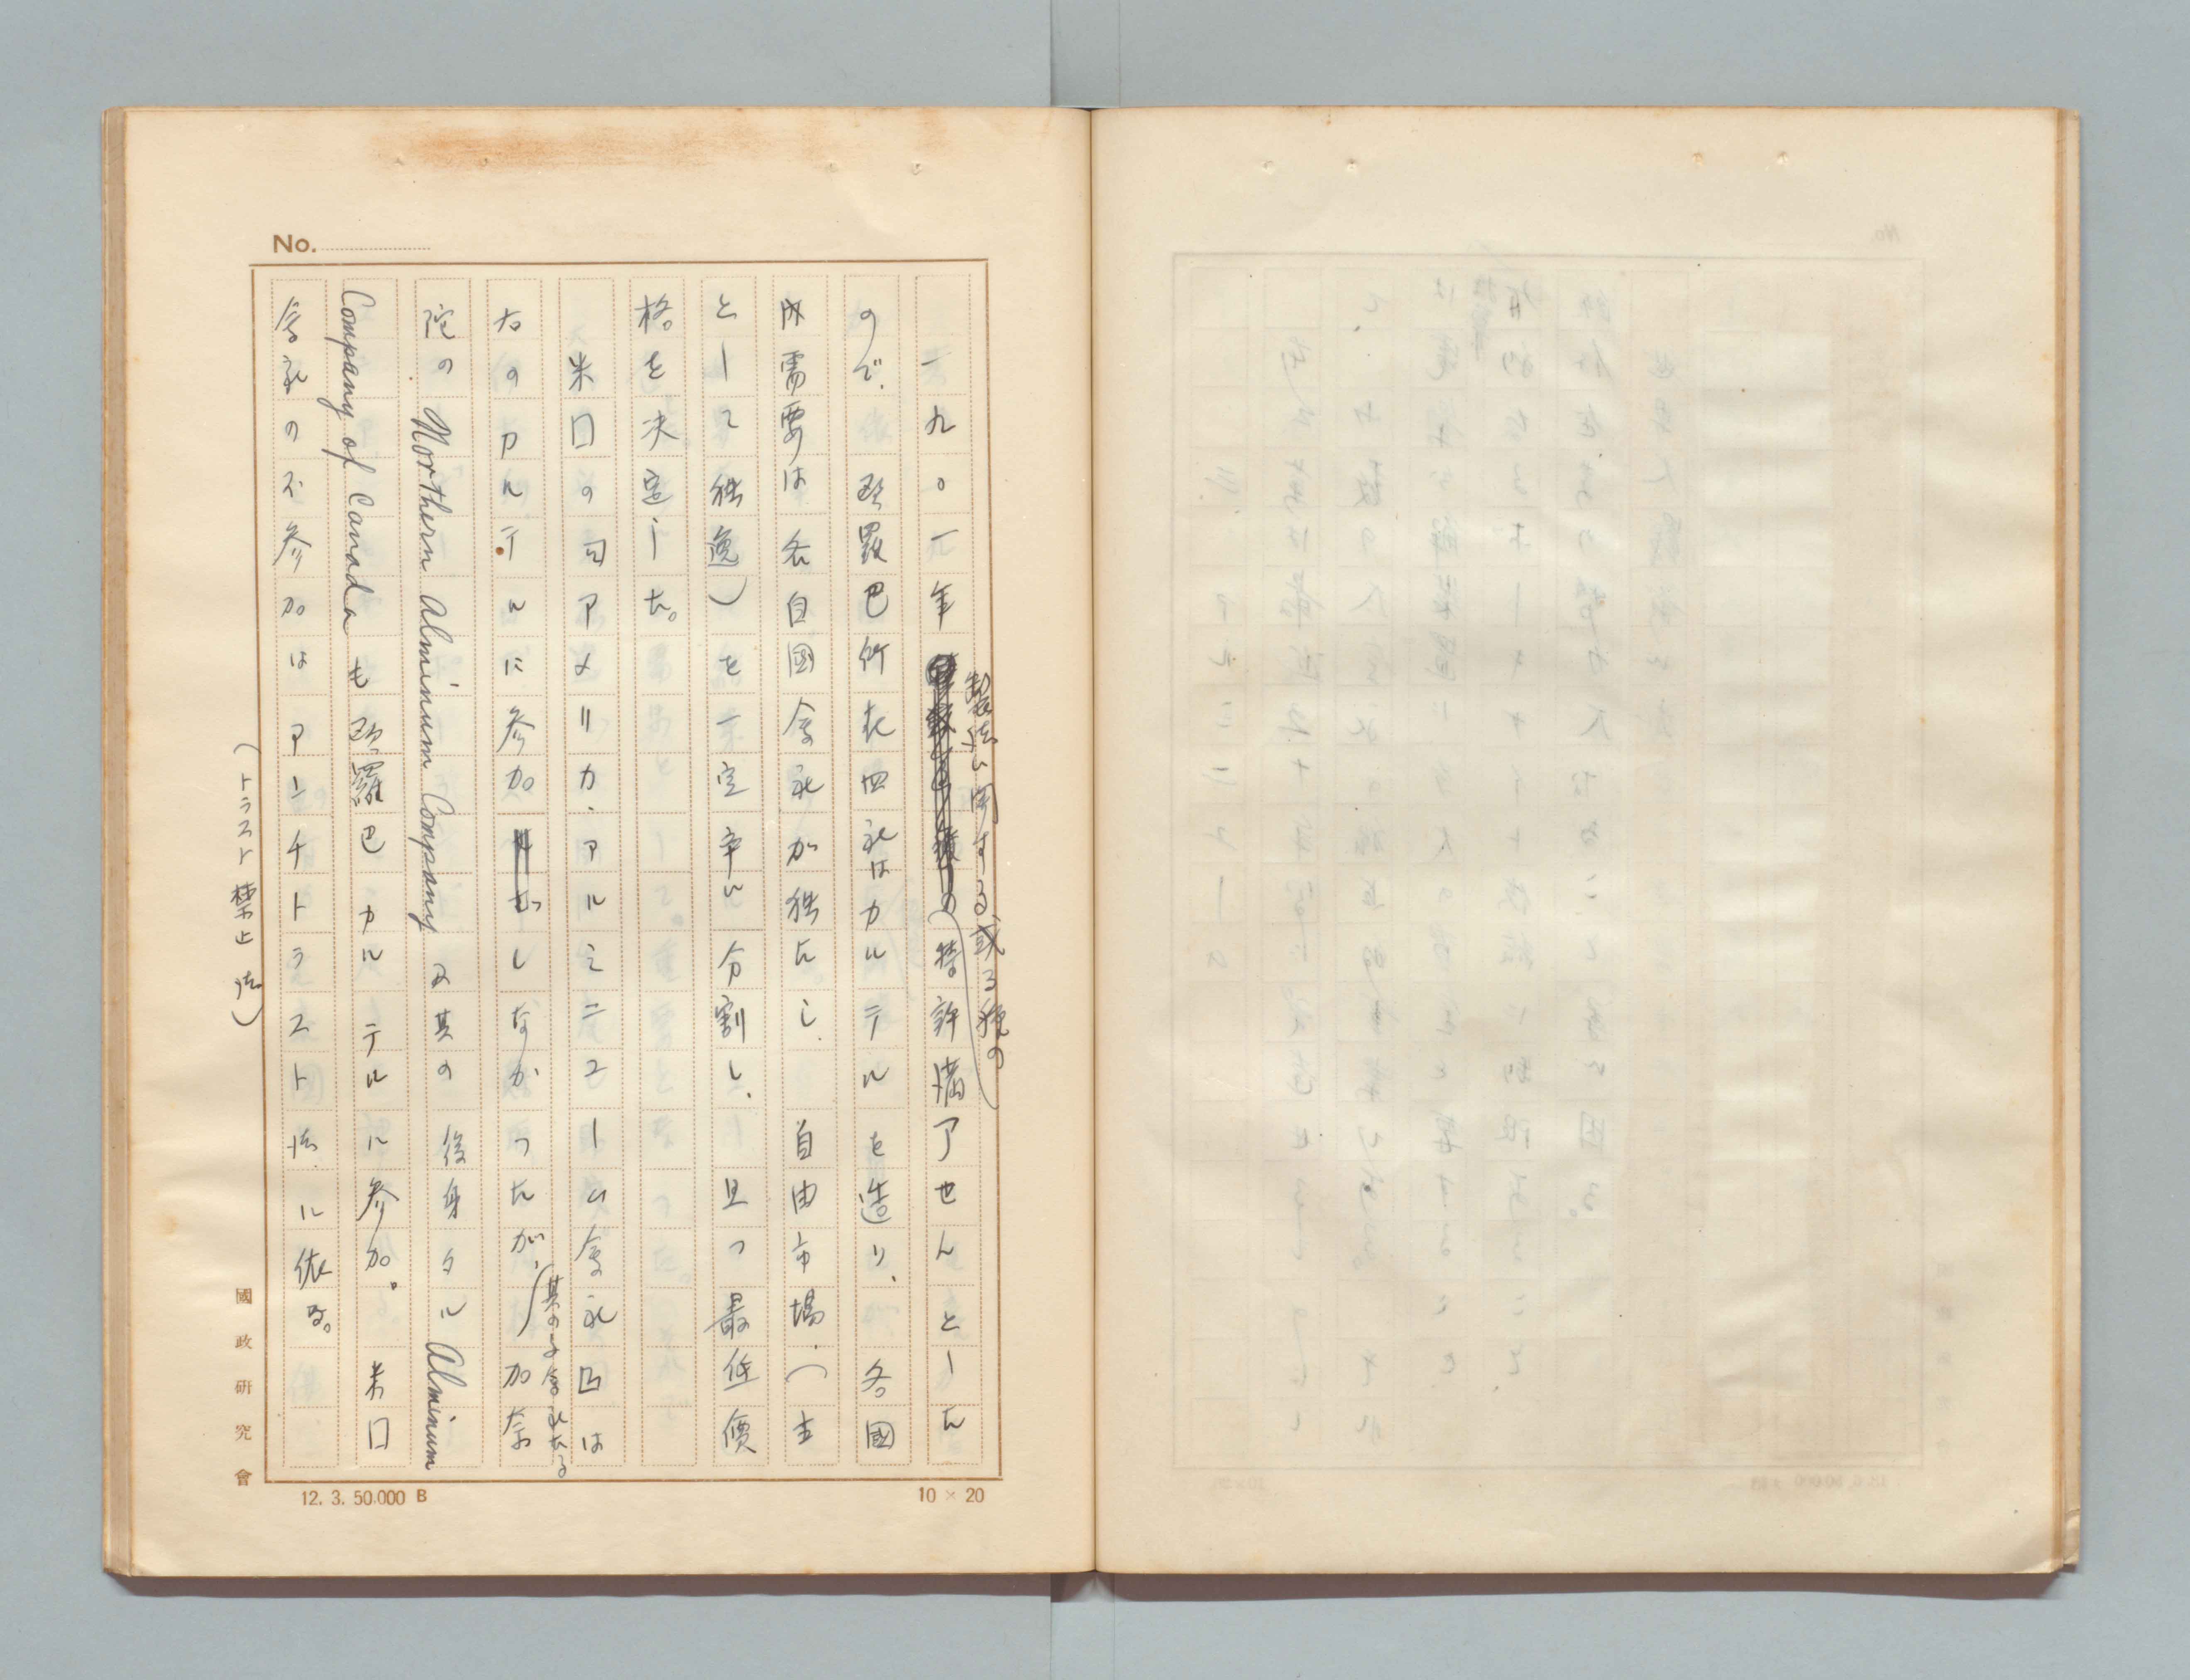 No.
一九〇一年製法に関する或る種の特許満了せんとした
ので、欧羅巴所在四社はカルテルを造り、各國
内需要は各自國会社が独占し、自由市場(主
として独逸)を一定率に分割し、且つ最低價
格を決定した。
米国の司アメリカ・アルミニューム会社は
右のカルテルに参加しなかったが、其の子会社たる加奈
陀の Northern Aluminum Company 及其の後身タル Aluminum
Company of Canada も欧羅巴カルテルに参加。米国
会社の不参加はアンチトラスト法に依る。
(トラスト禁止法)
國政研究會
12. 3. 50.000 B
10 × 20